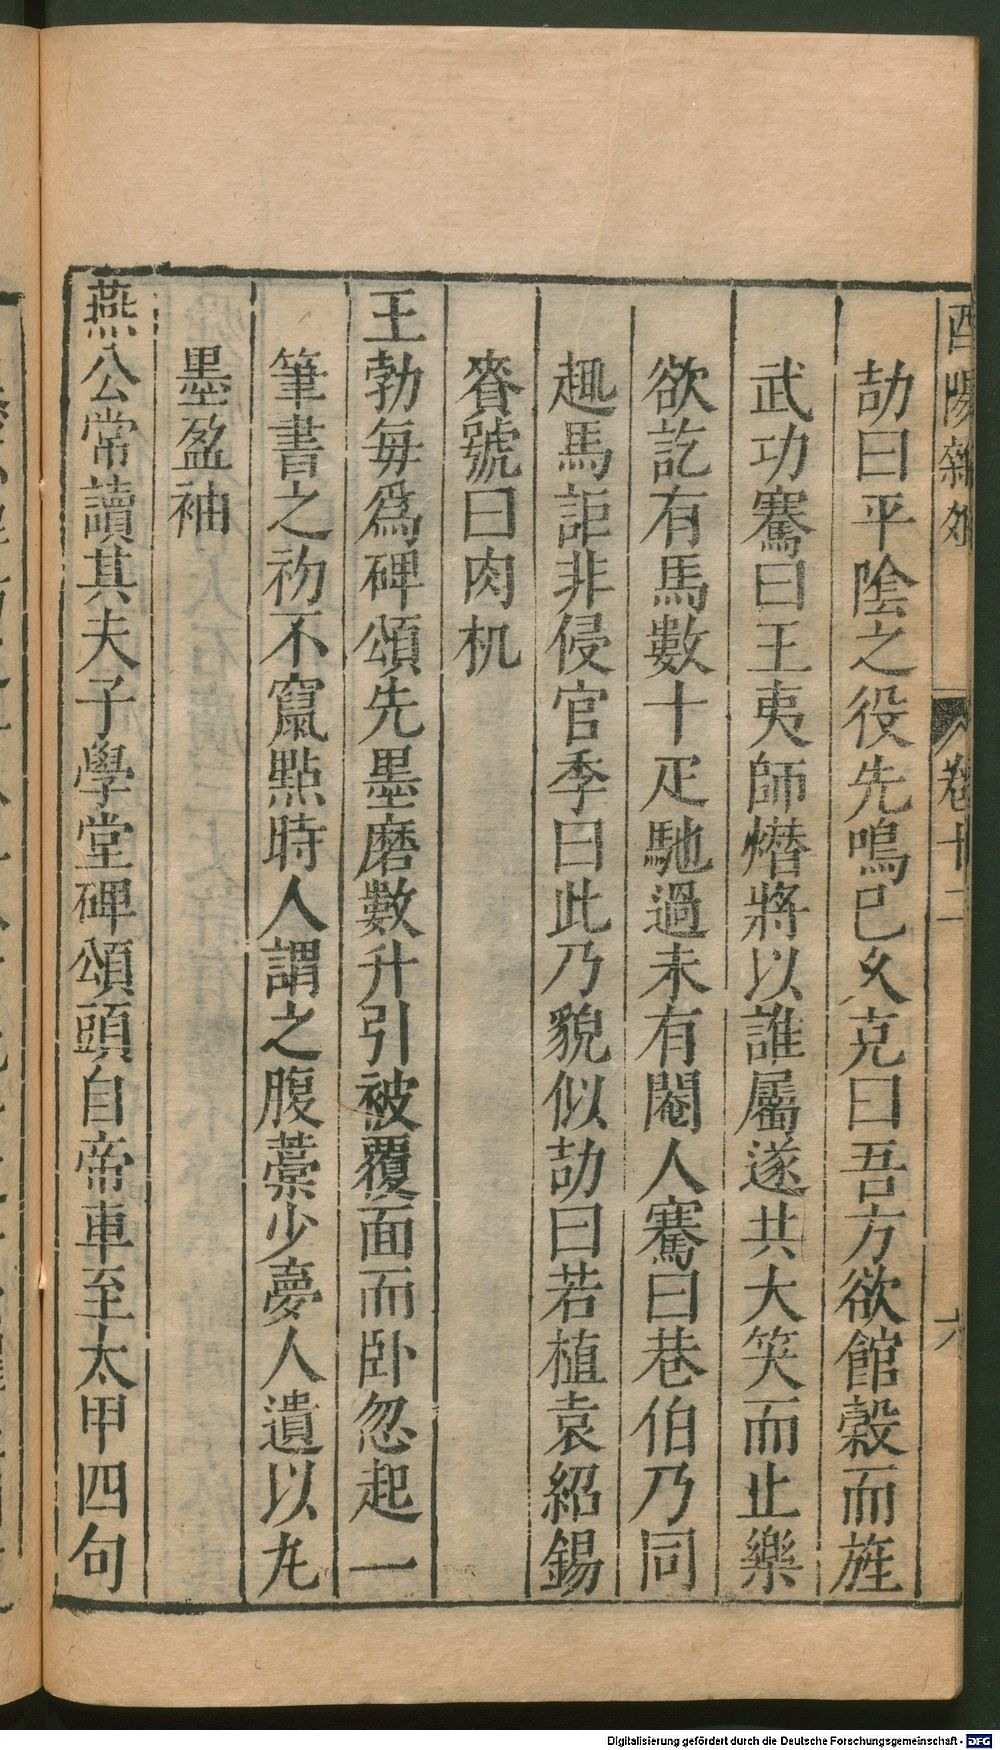 酉陽雜俎 卷十二 六
劼曰平陰之役先鳴已久克曰吾方欲館穀而旌
武功騫曰王夷師熸將以誰屬遂共大笑而止樂
欲訖有馬數十疋馳過末有閹人騫曰巷伯乃同
趣馬詎非侵官季曰此乃貌似劼曰若植袁紹錫
賚號曰肉机
王勃每爲碑頌先墨磨數升引被覆面而卧忽起一
筆書之初不竄點時人謂之腹藁少夢人遺以丸
墨盈袖
燕公常讀其夫子學堂碑頌頭自帝車至太甲四句
Digitalisierung gefördert durch die Deutsche Forschungsgemeinschaft - DFG